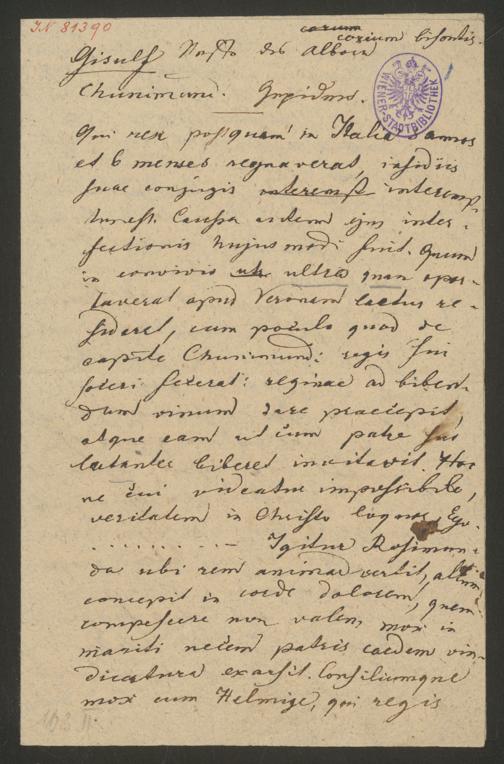 IN 81390
corium
corium bisontis.
Gisulf Neffe des Alboin
Chunimund. Gepiden.
WIENER-STADTBIBLIOTHEK
Qui rex postquam in Italia 3 annos
et 6 menses regnaverat, insidiis
suae conjugis interemt interemp-
tus est. Caussa autem ejus inter-
fectionis hujusmodi fuit. Quum
in convivio ultra quam opor-
tuerat apud Veronam laetus re-
sideret, cum poculo quod de
capite Chunimundi regis sui
soceri fecerat: reginae ad biben-
dum vinum dare praecepit
atque eam ut cum patre suo
laetanter biberet invitavit. Hoc
ne cui videatur impossibile,
veritatem in Christo loquor, Ego
. . . . . . . . Igitur Rosimun-
da ubi rem animadvertit, altum
concepit in corde dolorem, quem
compescere non valens, mox in
mariti necem patris caedem vin-
dicatura exarsit. Consiliumque
mox cum Helmige, qui regis